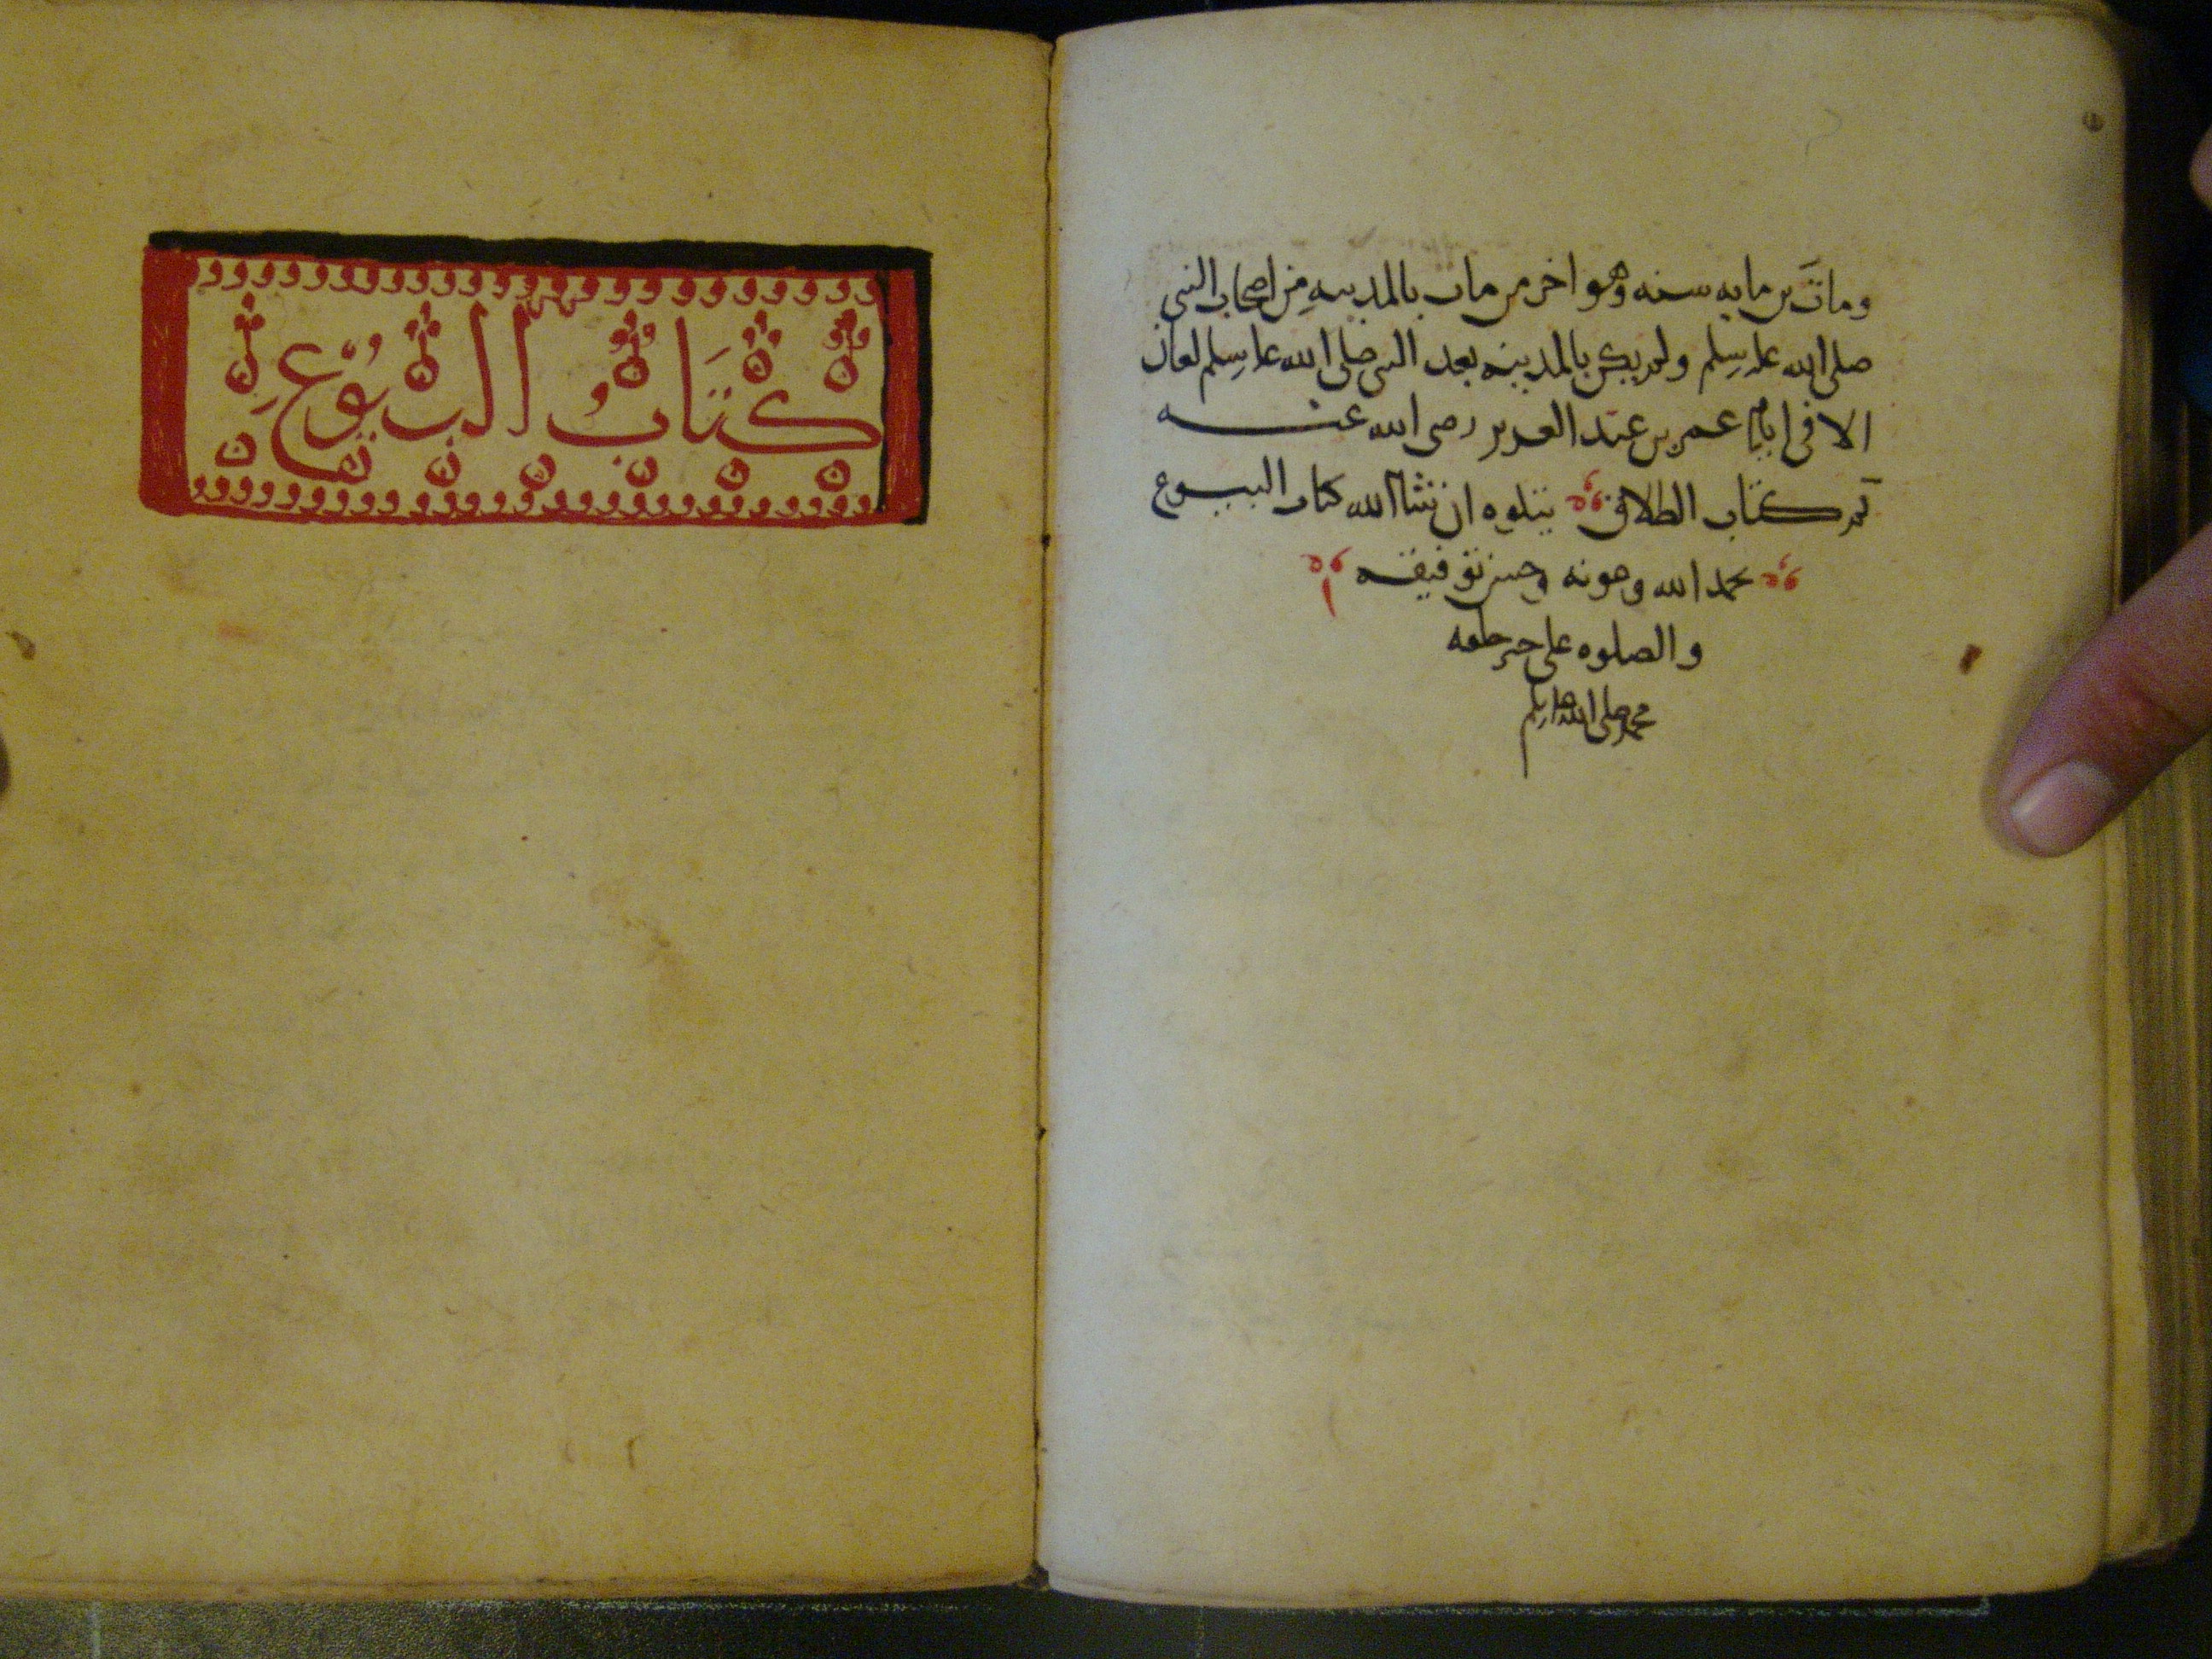 ومات بن مايه سنه وهو اخر من مات بالمدينه من اصحاب النبى
صلى الله عليه وسلم ولم يكن بالمدينه بعد النبى صلى الله عليه وسلم لعان
الا فى ايام عمر بن عبد العزيز رضى الله عنه
تم كتاب الطلاق يتلوه ان شا الله كتاب البيوع
بحمد الله وعونه وحسن توفيقه
والصلوه على خير خلقه
محمد صلى الله عليه وسلم
كتاب البيوع